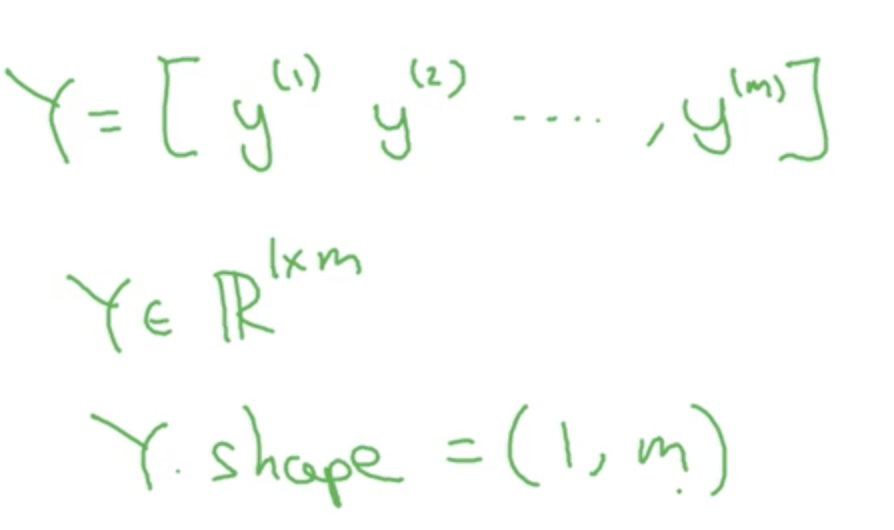 Y = [ y^(1) y^(2) ..... , y^(m) ]
Y ∈ ℝ^1×m
Y.shape = (1, m)